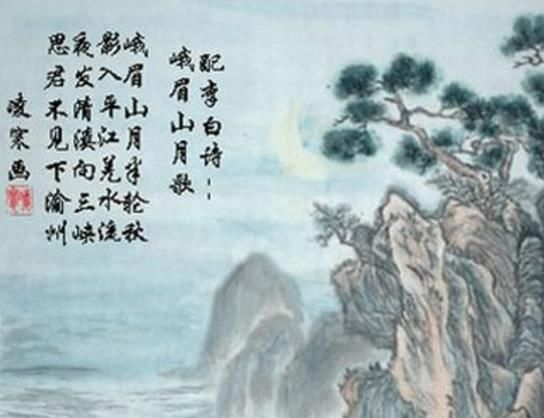 配李白诗：
峨眉山月歌
峨眉山月半轮秋
影入平江羌水流
夜发清溪向三峡
思君不见下渝州
凌寒画